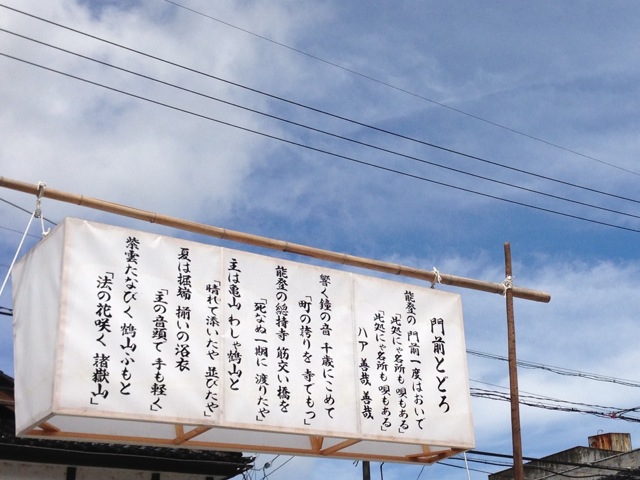 門前とどろ
能登の 門前一度はおいで
「此処にゃ名所も 唄もある」
「此処にゃ名所も 唄もある」
ハア 善哉 善哉
響く鐘の音 千歳にこめて
「町の誇りを 寺でもつ」
能登の總持寺 筋交い橋を
「死なぬ一期に 渡りたや」
主は亀山 わしゃ鶴山と
「晴れて添いたや 並びたや」
夏は堀端 揃いの浴衣
「主の音頭で 手も軽く」
紫雲たなびく 鶴山ふもと
「法の花咲く 諸嶽山」